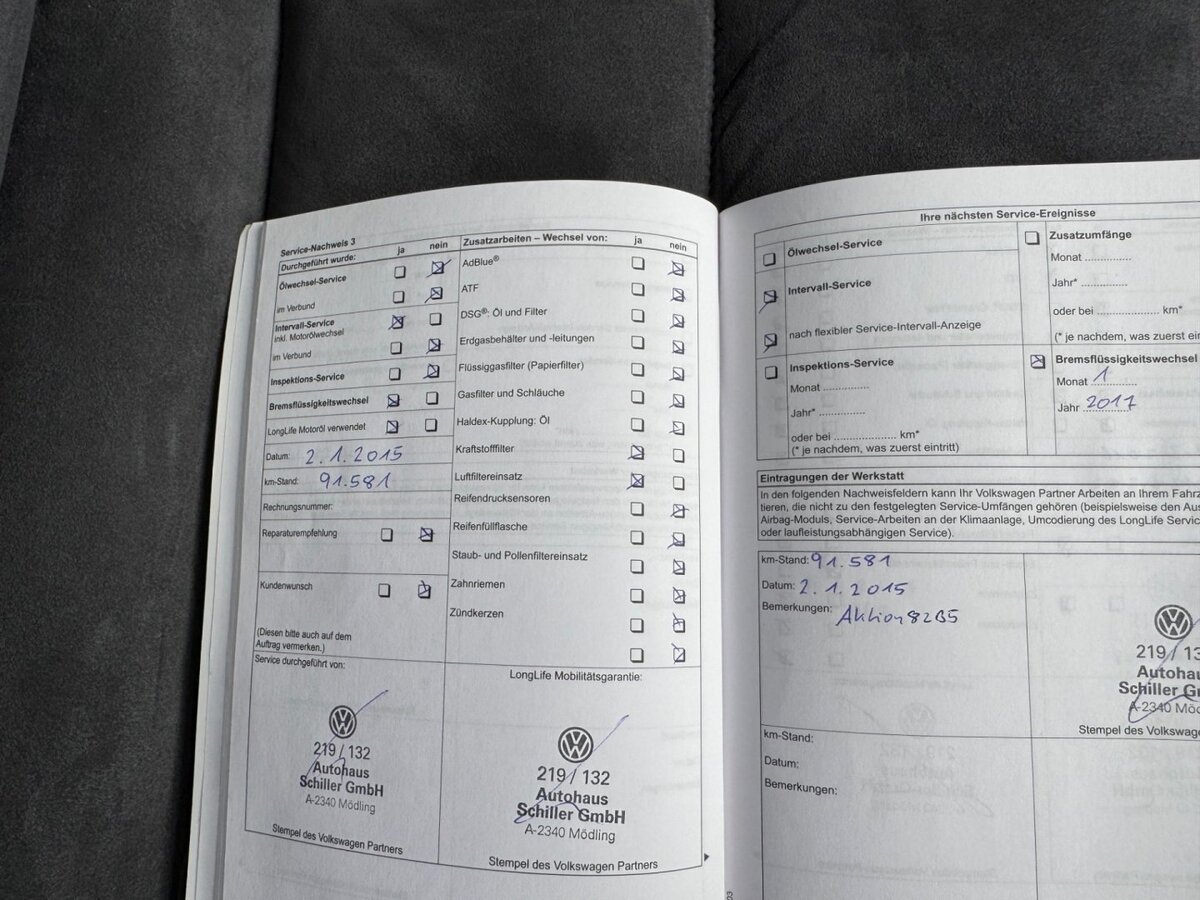 Service-Nachweis 3
Durchgeführt wurde: ja nein
Ölwechsel-Service
im Verbund
Intervall-Service
inkl. Motorölwechsel
im Verbund
Inspektions-Service
Bremsflüssigkeitswechsel
LongLife Motoröl verwendet
Datum: 2.1.2015
km-Stand: 91.581
Rechnungsnummer:
Reparaturempfehlung
Kundenwunsch
(Diesen bitte auch auf dem
Auftrag vermerken.)
Service durchgeführt von:
219/132
Autohaus
Schiller GmbH
A-2340 Mödling
Stempel des Volkswagen Partners
Zusatzarbeiten – Wechsel von: ja nein
AdBlue®
ATF
DSG®: Öl und Filter
Erdgasbehälter und -leitungen
Flüssiggasfilter (Papierfilter)
Gasfilter und Schläuche
Haldex-Kupplung: Öl
Kraftstofffilter
Luftfiltereinsatz
Reifendrucksensoren
Reifenfüllflasche
Staub- und Pollenfiltereinsatz
Zahnriemen
Zündkerzen
LongLife Mobilitätsgarantie:
219/132
Autohaus
Schiller GmbH
A-2340 Mödling
Stempel des Volkswagen Partners
Ihre nächsten Service-Ereignisse
Ölwechsel-Service
Intervall-Service
nach flexibler Service-Intervall-Anzeige
Inspektions-Service
Monat ..............
Jahr* ..............
oder bei .................... km*
(* je nachdem, was zuerst eintritt)
Zusatzumfänge
Monat ..............
Jahr* ..............
oder bei .................... km*
(* je nachdem, was zuerst ein
Bremsflüssigkeitswechsel
Monat 1
Jahr 2017
Eintragungen der Werkstatt
In den folgenden Nachweisfeldern kann Ihr Volkswagen Partner Arbeiten an Ihrem Fahrz
tieren, die nicht zu den festgelegten Service-Umfängen gehören (beispielsweise den Aus
Airbag-Moduls, Service-Arbeiten an der Klimaanlage, Umcodierung des LongLife Servic
oder laufleistungsabhängigen Service).
km-Stand: 91.581
Datum: 2.1.2015
Bemerkungen: Aktion 82B5
219/13
Autohau
Schiller G
A-2340 Möd
Stempel des Volkswage
km-Stand:
Datum:
Bemerkungen: